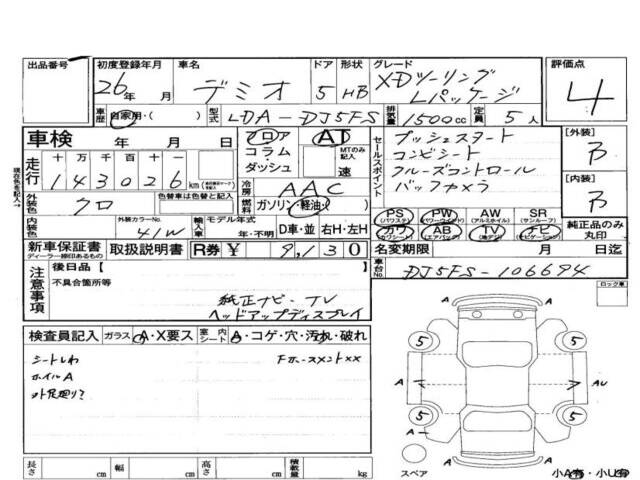 出品番号 初度登録年月 車名 ドア 形状 グレード 評価点
26年 月 デミオ 5 HB XDツーリング Lパッケージ 4
車歴 自家用・( ) 型式 LDA-DJ5FS 排気量 1500cc 定員 5人
車検 年 月 日 フロア コラム・ダッシュ AT MTのみ記入 速
セールスポイント プッシュスタート
コンビシート
クルーズコントロール
バックカメラ
[外装] B
[内装] B
走行 十万千百十一
143026km
冷房 AAC
外装色 クロ 色替車は色替と記入 燃料 ガソリン・軽油・( )
内装色 外装カラーNo. 41W 輸入車 モデル年式 年・不明 D車・並 右H・左H
PS (パワステ) PW (パワーウインド) AW (アルミホイル) SR (サンルーフ)
カワ (カワシート) AB (エアバック) TV (地デジ) ナビ (ナビゲーション)
純正品のみ丸印
新車保証書 ディーラー捺印あるもの 取扱説明書 R券 ¥ 9,130
名変期限 月 日迄
車台No. DJ5FS-106694
注意事項 後日品[ ]
不具合箇所等
純正ナビ・TV
ヘッドアップディスプレイ
ロック車
検査員記入 ガラス A・X要ス 室内シート A・コゲ・穴・汚れ・破れ
シートしわ FホースメントXX
ホイルA
5 5
A A AU
5 5
A A
長さ cm 幅 cm 高さ cm 積載量 kg
スペア 小A有・小U有